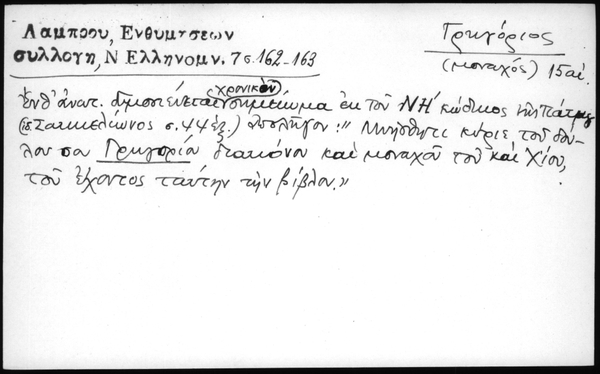 Λάμπρου, Ενθυμήσεων
συλλογη, Ν. Ελληνομν. 7 σ. 162-163
Γρηγόριος
(μοναχός) 15 αἰ.
χρονικὸν
Ἔνθ' ἀνατ. δημοσιεύεται σημείωμα ἐκ τοῦ ΝΗ' κώδικος τῆς Πάτμου
(ἰδ. Σακκελίωνος σ. 44 ἑξ.) ἀπολῆγον: "Μνήσθητι κύριε τοῦ δού-
λου σου Γρηγορίου διακόνου καὶ μοναχοῦ τοῦ καὶ Χίου,
τοῦ ἔχοντος ταύτην τὴν βίβλον."